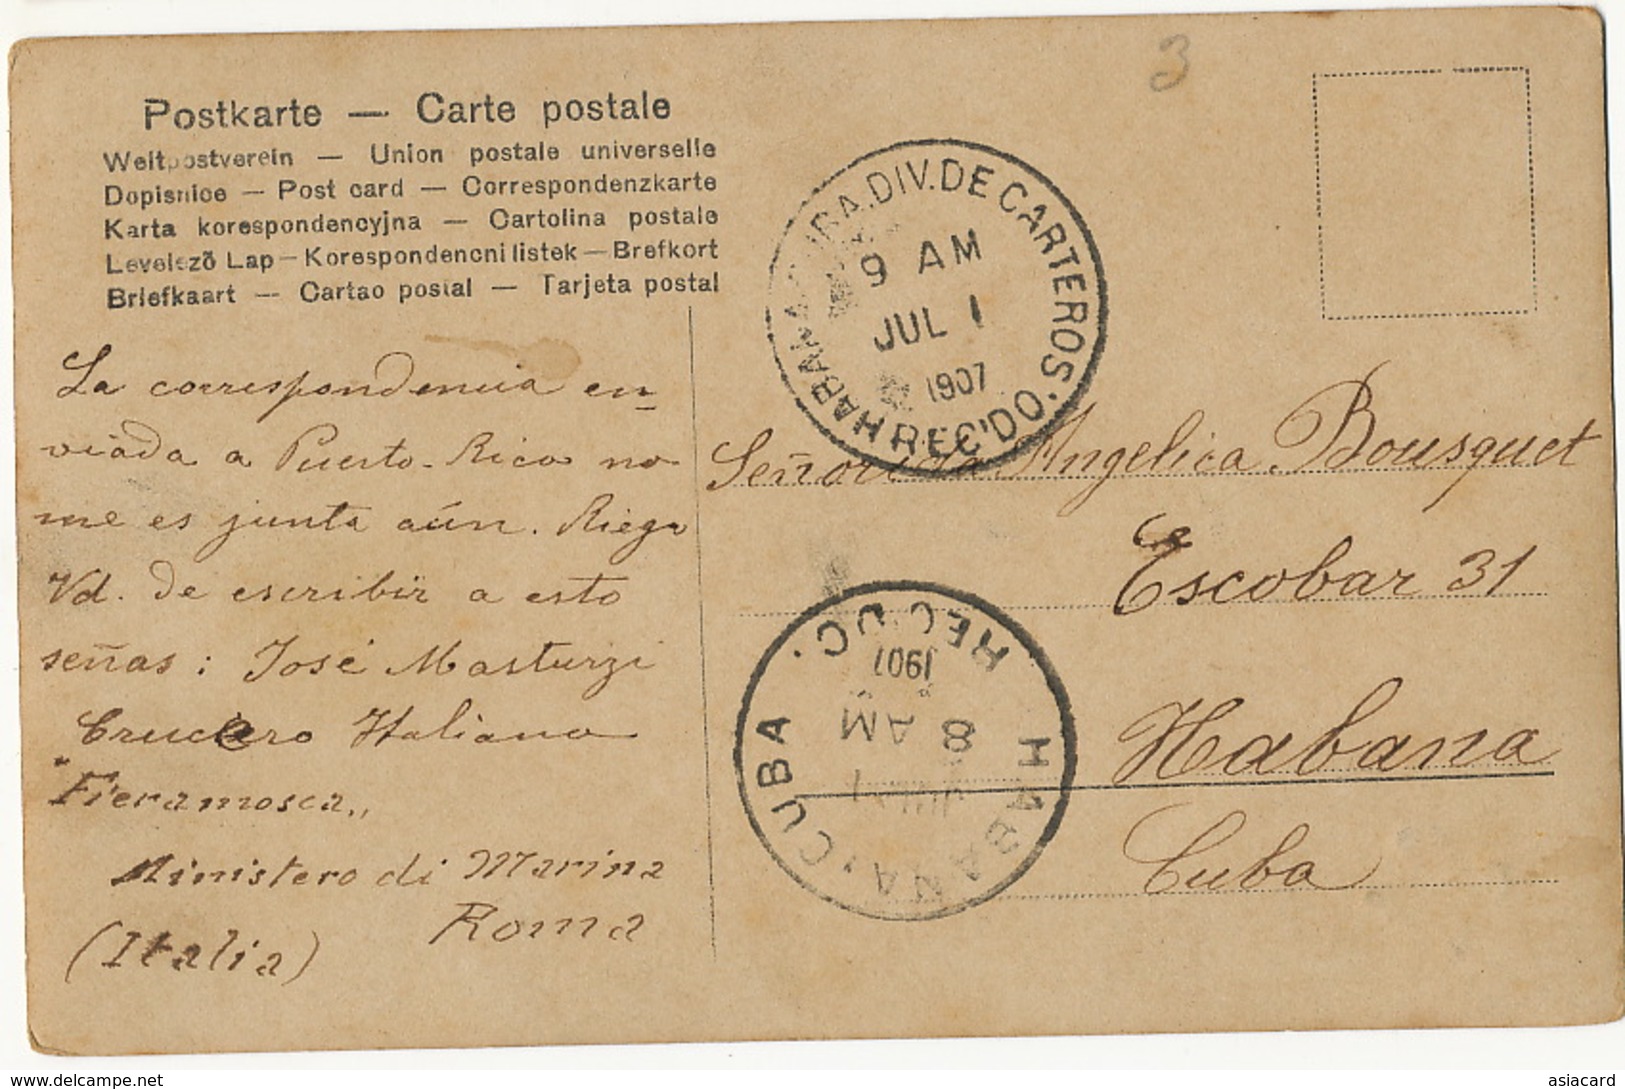 3
Postkarte — Carte postale
Weltpostverein — Union postale universelle
Dopisnice — Post card — Correspondenzkarte
Karta korespondencyjna — Cartolina postale
Levelező Lap — Korespondencni listek — Brefkort
Briefkaart — Cartao postal — Tarjeta postal
La correspondencia en=
viada a Puerto-Rico no
me es junta aún. Riego
Vd. de escribir a esto
señas: José Masturzi
Crucero Italiano
"Fieramosca„
Ministero di Marina
Roma
(Italia)
HABANA.CUBA.DIV.DE CARTEROS.
9 AM
JUL 1
1907
REC'DO.
Señorita Angelica Bousquet
Escobar 31
Habana
Cuba
HABANA.CUBA.
REC'D C.
1907
8 AM